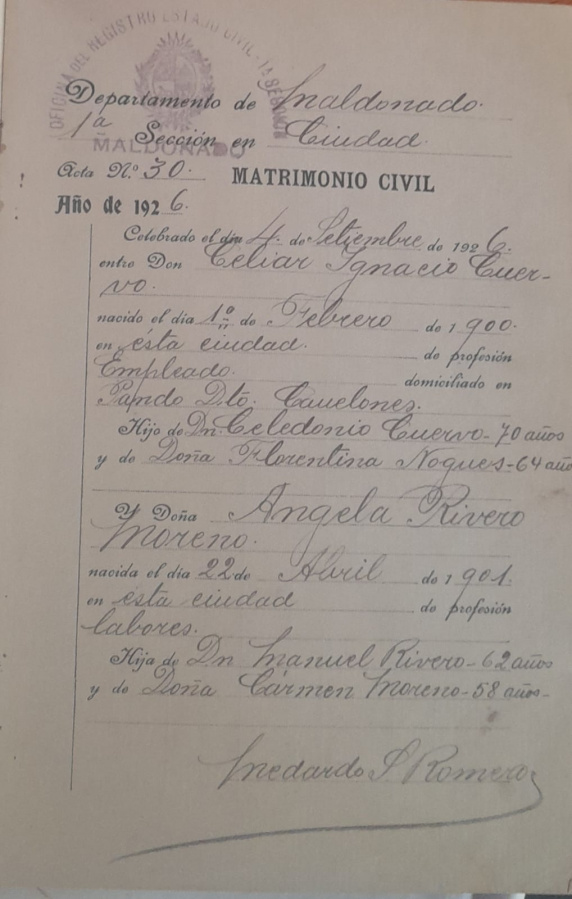 OFICINA DEL REGISTRO ESTADO CIVIL - 1ª SECCION
MALDONADO
Departamento de Maldonado.
1ª Sección en Ciudad.
Acta N.º 30. MATRIMONIO CIVIL
Año de 1926.
Celebrado el dia 4. de Setiembre de 1926.
entre Don Celiar Ignacio Cuer-
vo.
nacido el día 1º de Febrero de 1900.
en ésta ciudad. de profesión
Empleado. domiciliado en
Pando Dto. Canelones.
Hijo de Dn Celedonio Cuervo - 70 años
y de Doña Florentina Nogues - 64 año
Y Doña Angela Rivero
Moreno.
nacida el día 22 de Abril de 1901.
en ésta ciudad de profesión
labores.
Hija de Dn Manuel Rivero - 62 años
y de Doña Cármen Moreno - 58 años -
Medardo S Romero